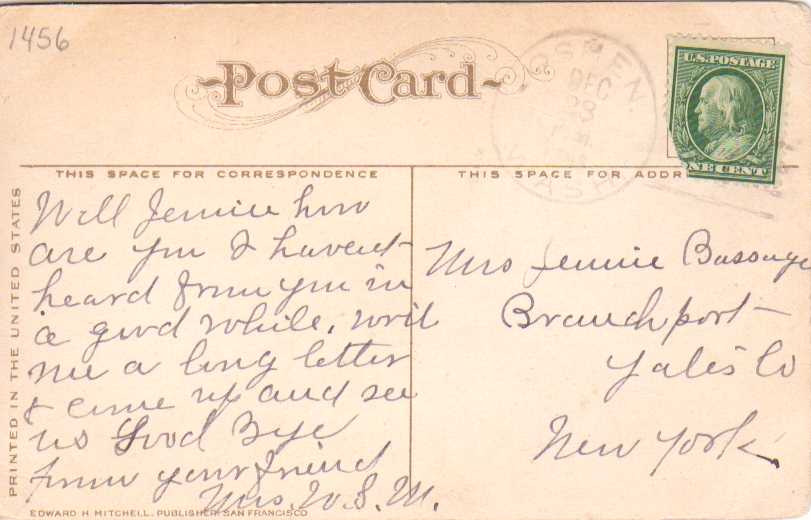 1456
Post Card
OSMEN.
DEC
28
WASH.
U.S. POSTAGE
ONE CENT
THIS SPACE FOR CORRESPONDENCE
THIS SPACE FOR ADDR
PRINTED IN THE UNITED STATES
Well Jennie how
are you I havent
heard from you in
a good while, writ
me a long letter
& come up and see
us Good Bye
from your friend
Mrs. W. S. M.
Mrs Jennie Bassage
Branchport
Yates Co
New York
EDWARD H. MITCHELL, PUBLISHER, SAN FRANCISCO